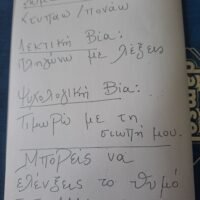 χτυπάω/πονάω
Λεκτική Βία:
Πληγώνω με λέξεις
Ψυχολογική Βία:
Τιμωρώ με τη
σιωπή μου.
Μπορείς να
ελέγξεις το θυμό